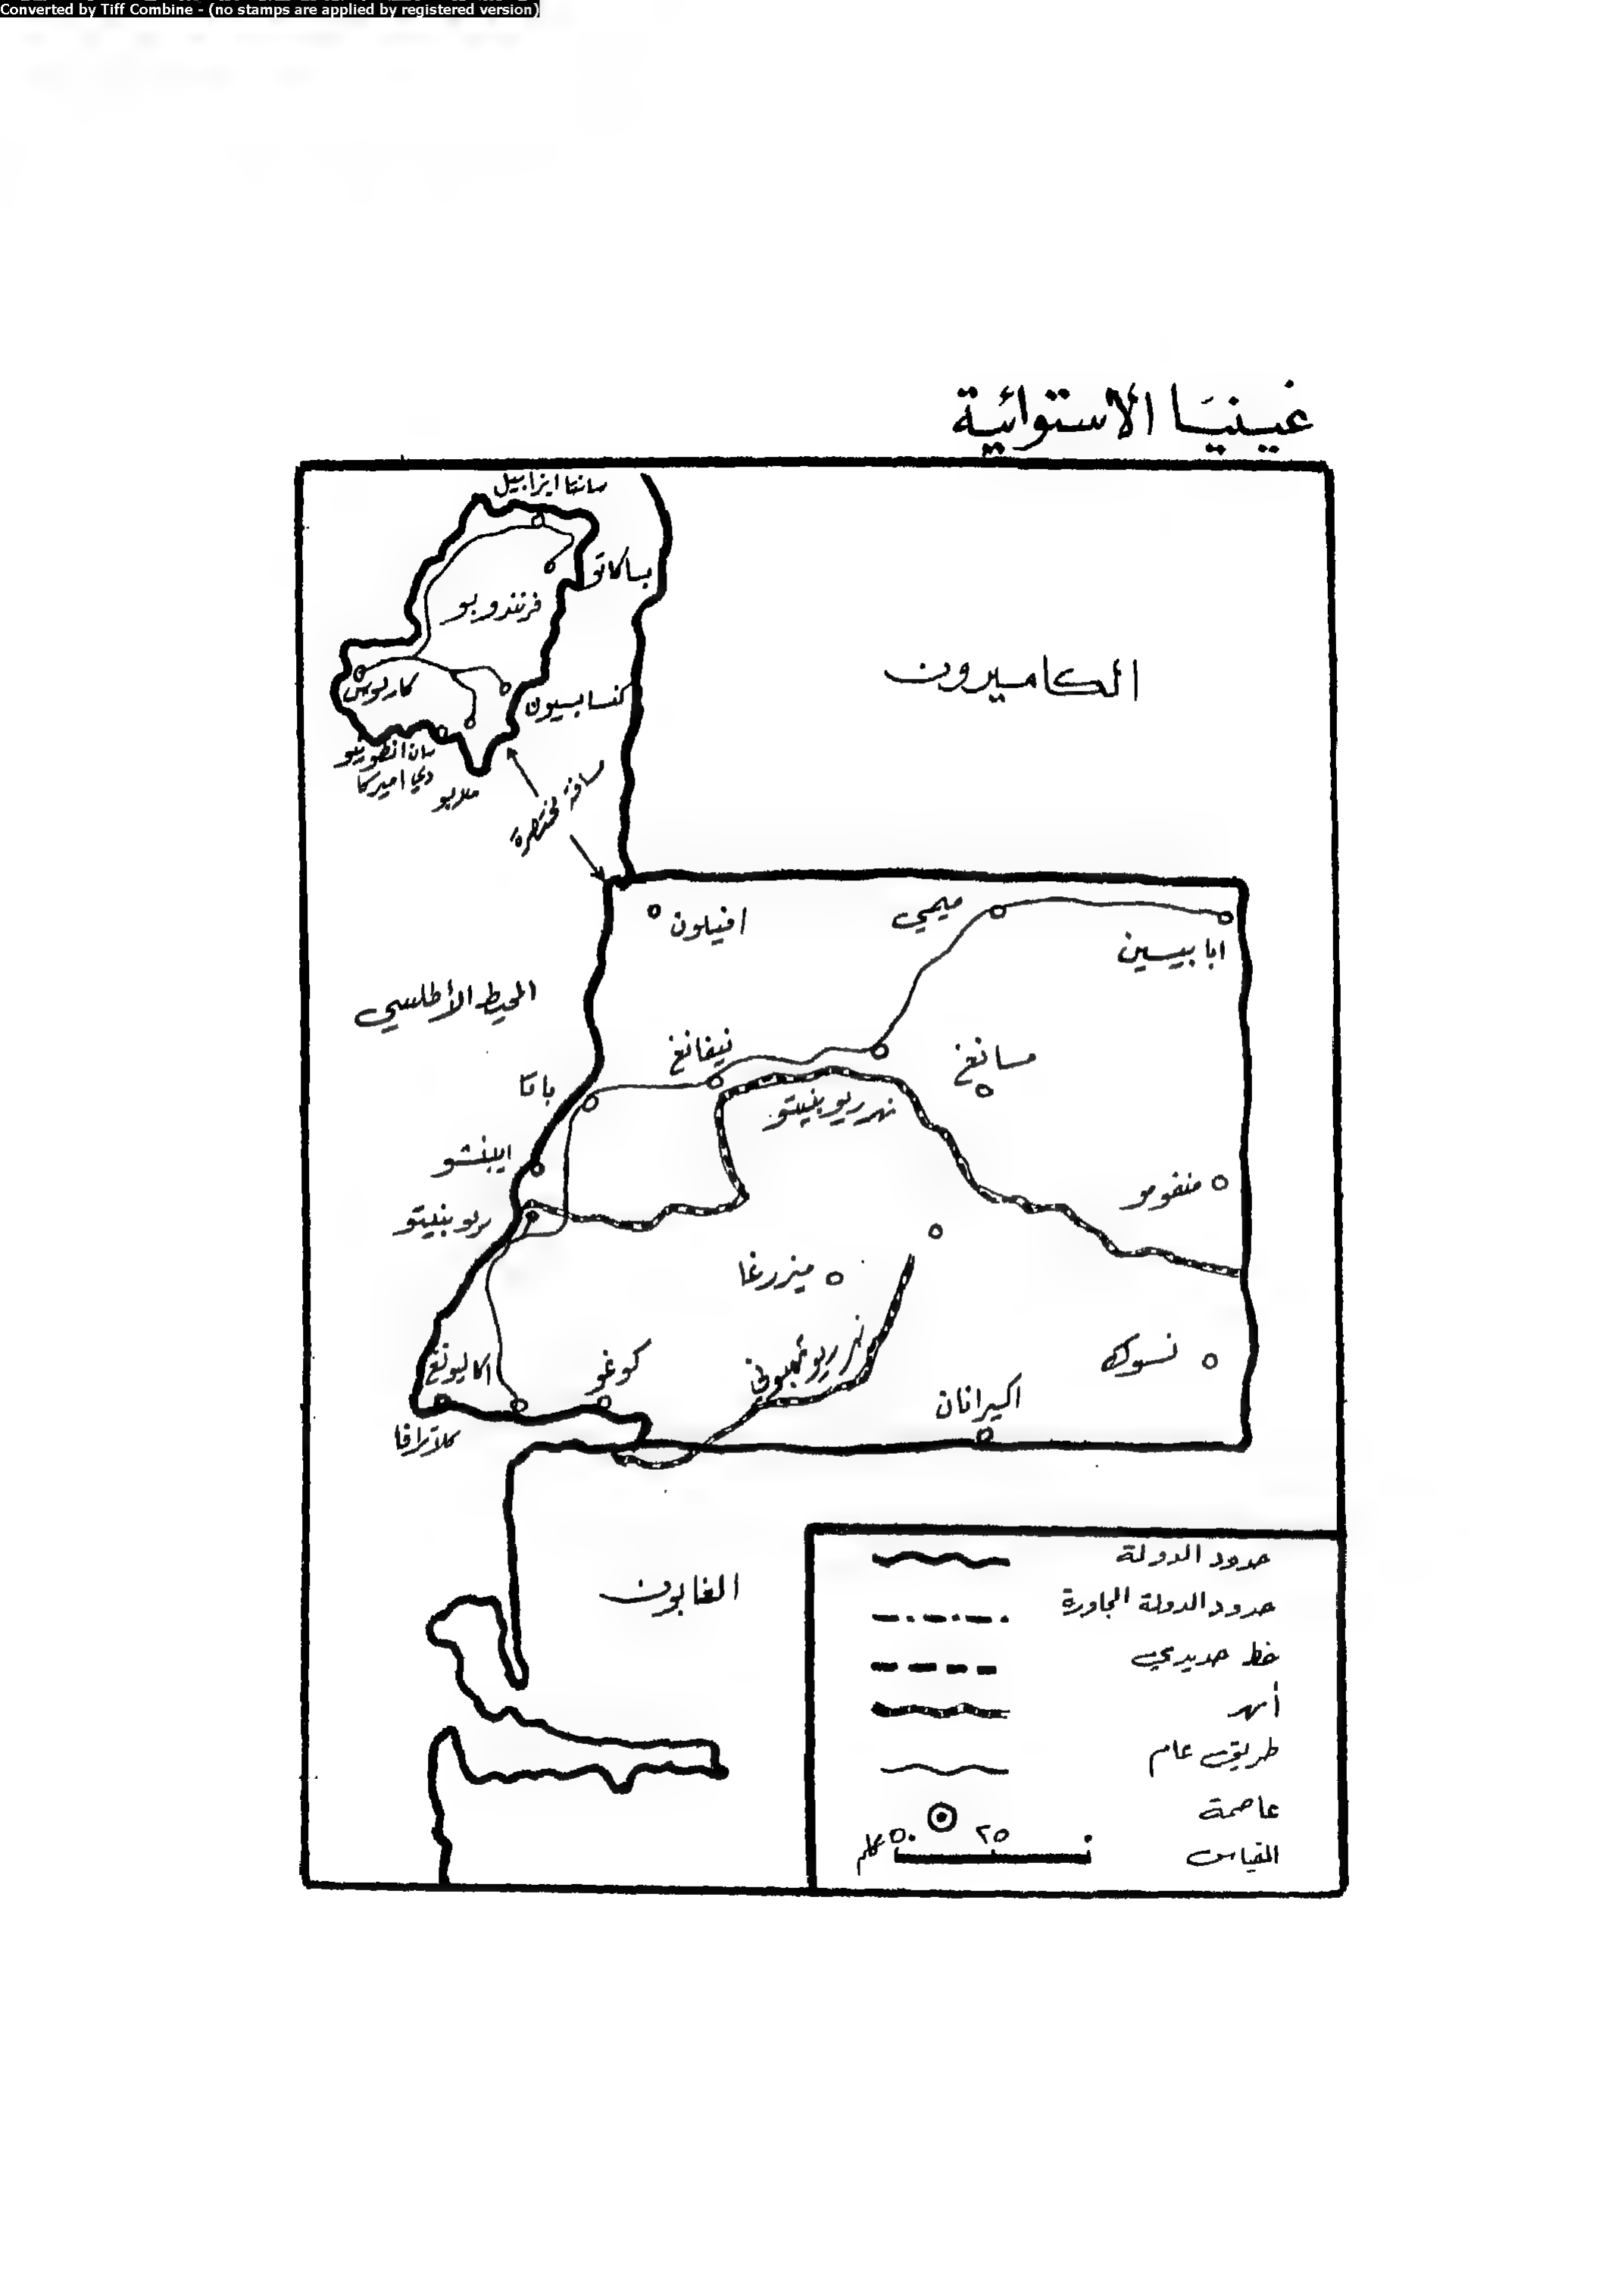 Converted by Tiff Combine - (no stamps are applied by registered version)
غينيا الاستوائية
سانتا ايزابيل
باكاتو
فرنندوبو
كارلوس
كنسابسيون
سان انطونيو
دي اميركا
ملابو
مسافة مختصرة
الكاميرون
افيلون
ميمي
ابابيسين
المحيط الأطلسي
نيفانغ
مسانغ
باتا
نهر ريو بنيتو
ايبنشو
منفومو
ريو بنيتو
ميزرغا
نسوك
اكاليونغ
كوغو
اكيرانان
كلاترافا
الغابون
حدود الدولة
حدود الدولة المجاورة
خط حديدي
أنهر
طريق عام
عاصمة
المقياس
٠ ٢٥ ٥٠ كلم